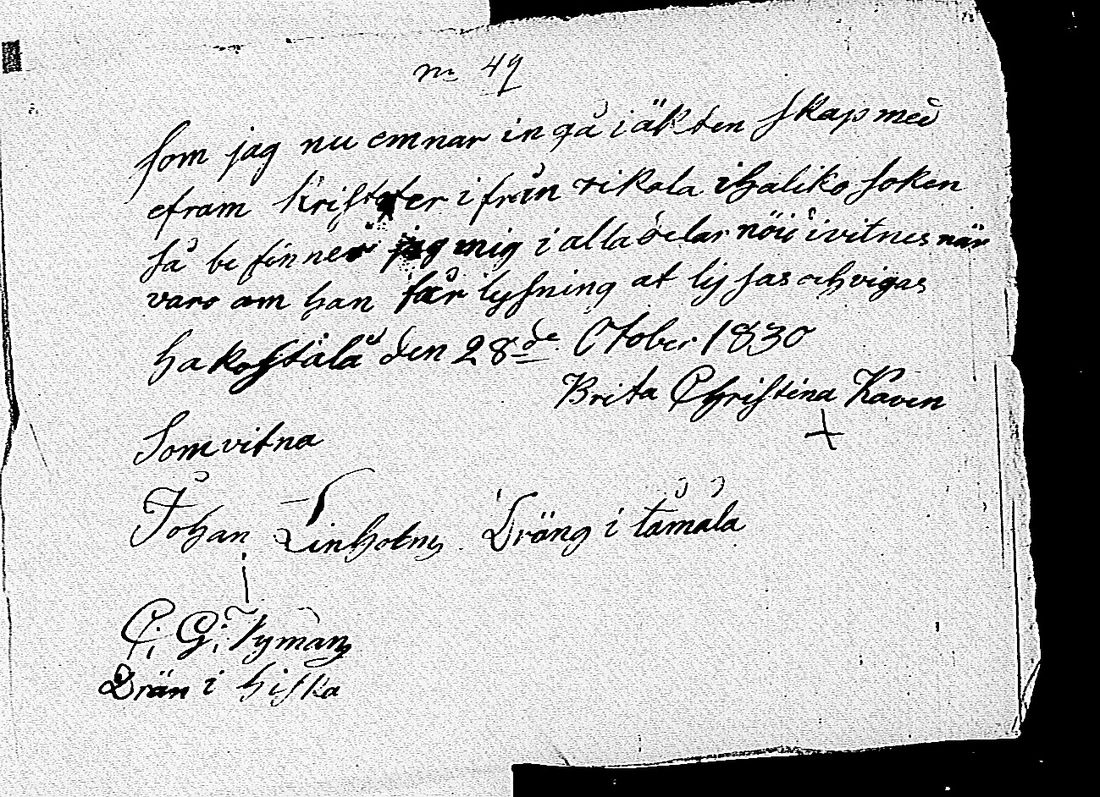 no 49
som jag nu emnar ingå i äkten skap med
efram Kristofer ifrån rikala i haliko soken
så befinner jag mig i alla delar nöid i vitnes när
varo om han får lysning at lysas och vigas
hakostala den 28de Otober 1830
Brita Christina Kaven
Som vitna
Johan Linholm Dräng i tamala
C: G: Nyman
Drän i hiska